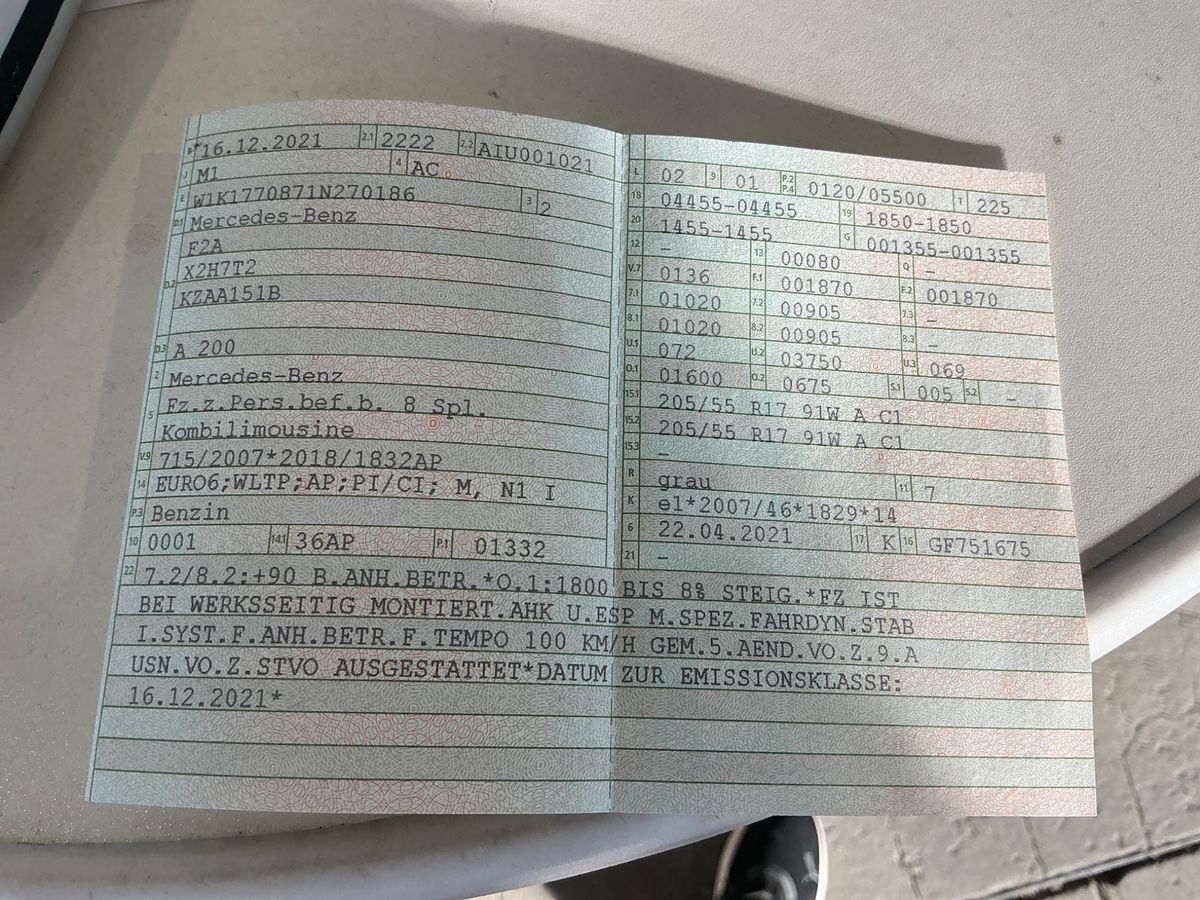 B *16.12.2021 2.1 2222 2.2 AIU001021
J M1 4 AC
E W1K1770871N270186 3 2
D.1 Mercedes-Benz
F2A
D.2 X2H7T2
KZAA151B
D.3 A 200
2 Mercedes-Benz
5 Fz.z.Pers.bef.b. 8 Spl.
Kombilimousine
V.9 715/2007*2018/1832AP
14 EURO6;WLTP;AP;PI/CI; M, N1 I
P.3 Benzin
10 0001 14.1 36AP P.1 01332
L 02 9 01 P.2 P.4 0120/05500 T 225
18 04455-04455 19 1850-1850
20 1455-1455 G 001355-001355
12 – 13 00080 Q –
V.7 0136 F.1 001870 F.2 001870
7.1 01020 7.2 00905 7.3 –
8.1 01020 8.2 00905 8.3 –
U.1 072 U.2 03750 U.3 069
O.1 01600 O.2 0675 S.1 005 S.2 –
15.1 205/55 R17 91W A C1
15.2 205/55 R17 91W A C1
15.3 –
R grau 11 7
K e1*2007/46*1829*14
6 22.04.2021 17 K 16 GF751675
21 –
22 7.2/8.2:+90 B.ANH.BETR.*O.1:1800 BIS 8% STEIG.*FZ IST
BEI WERKSSEITIG MONTIERT.AHK U.ESP M.SPEZ.FAHRDYN.STAB
I.SYST.F.ANH.BETR.F.TEMPO 100 KM/H GEM.5.AEND.VO.Z.9.A
USN.VO.Z.STVO AUSGESTATTET*DATUM ZUR EMISSIONSKLASSE:
16.12.2021*